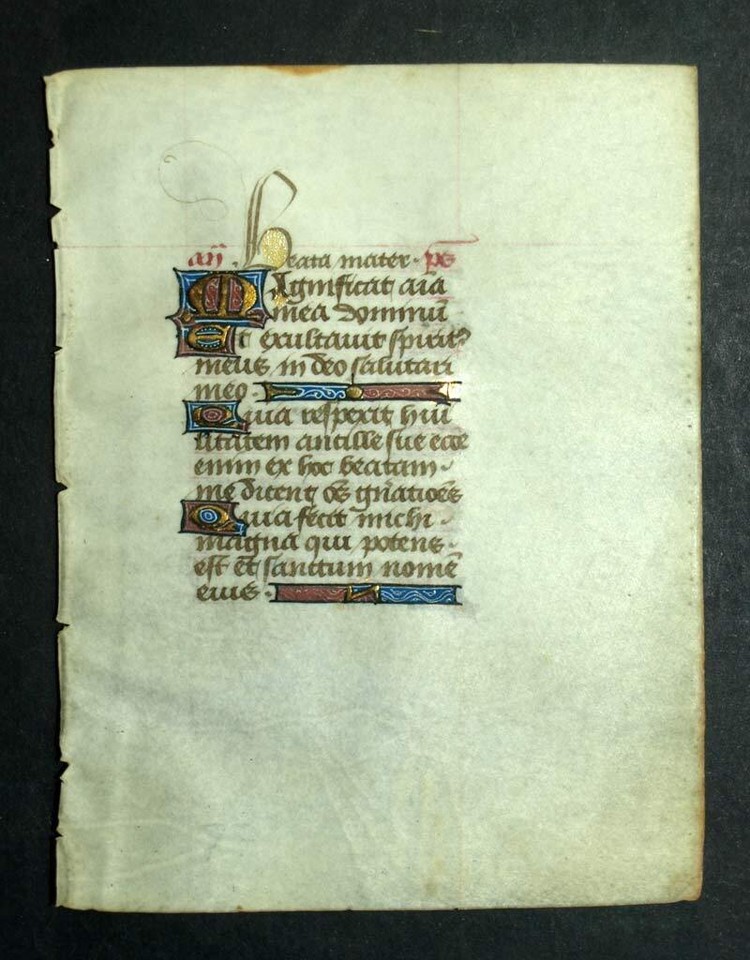 añ. Beata mater. ps̄
Magnificat aīa
mea dominū
Et exultauit spiritꝰ
meus in deo salutari
meo.
Quia respexit hūi
litatem ancille sue ecce
enim ex hoc beatam
me dicent oēs gñatiōes
Quia fecit michi
magna qui potens
est et sanctum nomē
eius.